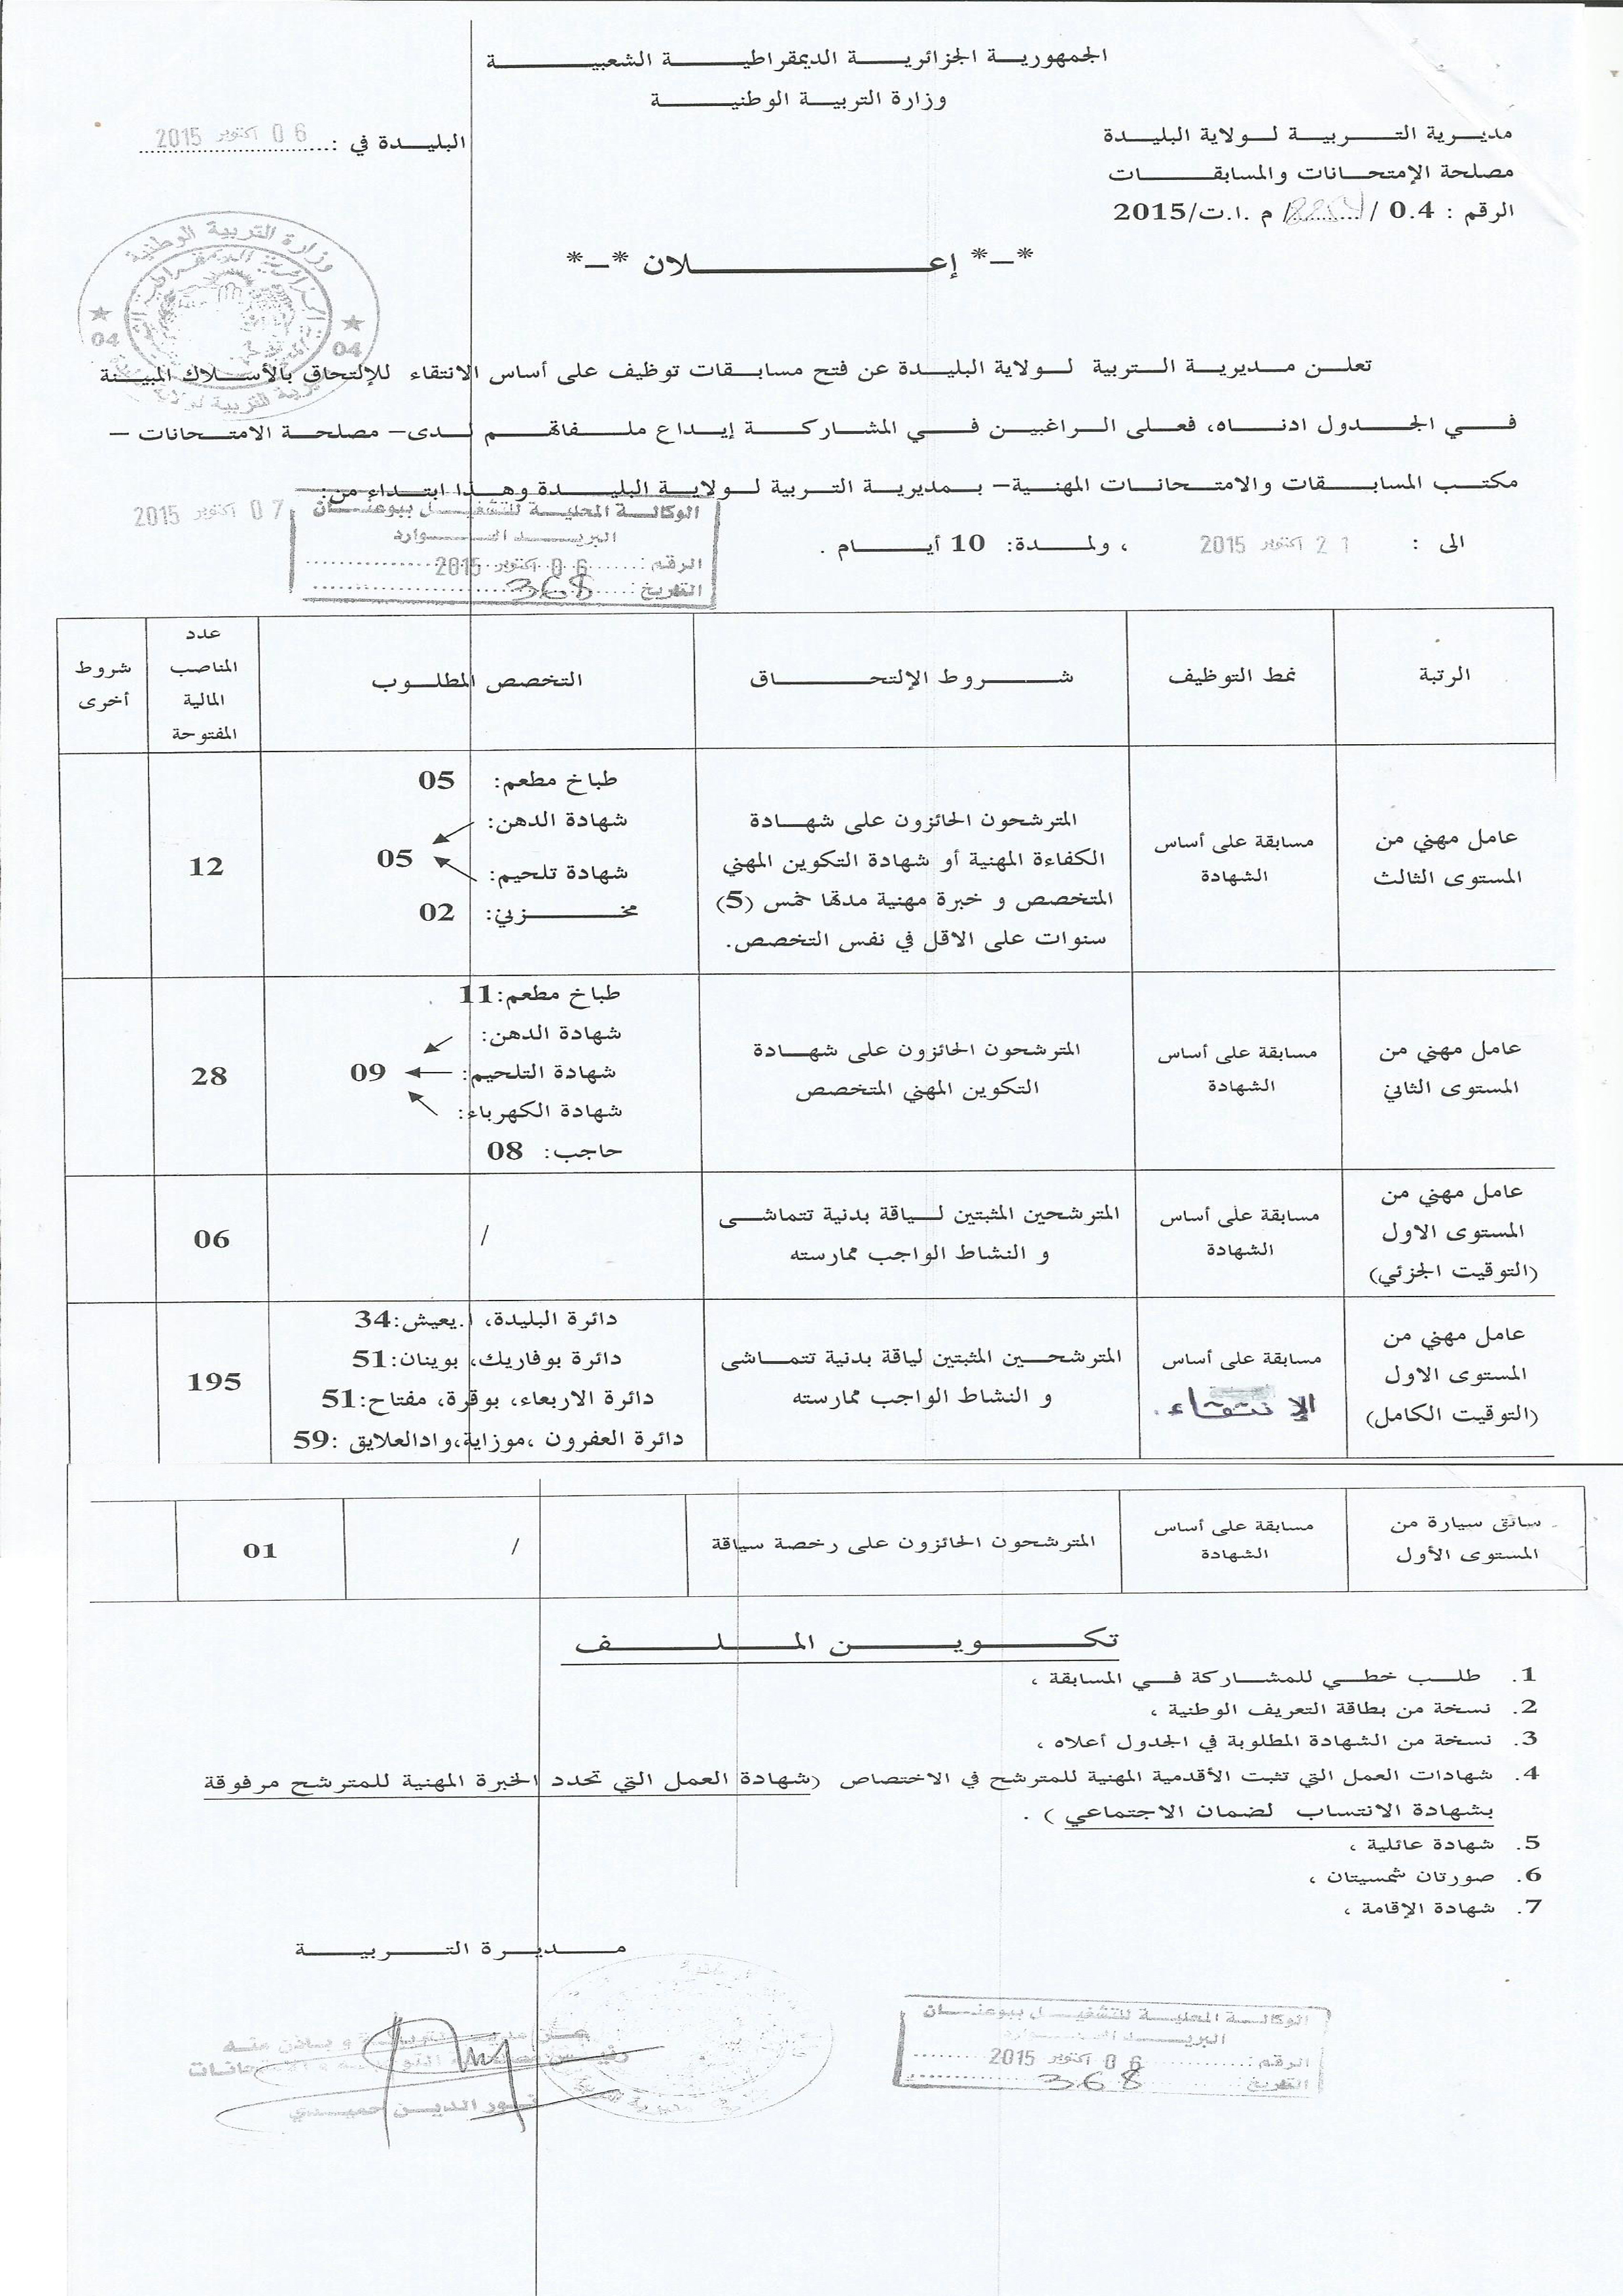 الجمهورية الجزائرية الديمقراطية الشعبية
وزارة التربية الوطنية
مديرية التربية لولاية البليدة
البليدة في : 06 اكتوبر 2015
مصلحة الإمتحانات والمسابقات
الرقم : 0.4 / / م .ا.ت/2015
*_* إعلان *_*
وزارة التربية الوطنية
04 04
تعلن مديرية التربية لولاية البليدة عن فتح مسابقات توظيف على أساس الانتقاء للإلتحاق بالأسلاك المبينة
في الجدول ادناه، فعلى الراغبين في المشاركة إيداع ملفاتهم لدى– مصلحة الامتحانات –
مكتب المسابقات والامتحانات المهنية– بمديرية التربية لولاية البليدة وهذا ابتداء من:
07 اكتوبر 2015
الى : 21 اكتوبر 2015 ، ولمدة: 10 أيام .
الوكالة المحلية للتشغيل ببوعنان
البريد الوارد
الرقم : 06 اكتوبر 2015
التاريخ : 368
الرتبة
نمط التوظيف
شروط الإلتحاق
التخصص المطلوب
عدد المناصب المالية المفتوحة
شروط أخرى
عامل مهني من
المستوى الثالث
مسابقة على أساس
الشهادة
المترشحون الحائزون على شهادة
الكفاءة المهنية أو شهادة التكوين المهني
المتخصص و خبرة مهنية مدتها خمس (5)
سنوات على الاقل في نفس التخصص.
طباخ مطعم: 05
شهادة الدهن:
05
شهادة تلحيم:
مخزني: 02
12
عامل مهني من
المستوى الثاني
مسابقة على أساس
الشهادة
المترشحون الحائزون على شهادة
التكوين المهني المتخصص
طباخ مطعم:11
شهادة الدهن:
شهادة التلحيم: 09
شهادة الكهرباء:
حاجب: 08
28
عامل مهني من
المستوى الاول
(التوقيت الجزئي)
مسابقة على أساس
الشهادة
المترشحين المثبتين لياقة بدنية تتماشى
و النشاط الواجب ممارسته
/
06
عامل مهني من
المستوى الاول
(التوقيت الكامل)
مسابقة على أساس
الإنتقاء.
المترشحين المثبتين لياقة بدنية تتماشى
و النشاط الواجب ممارسته
دائرة البليدة، ا.يعيش:34
دائرة بوفاريك، بوينان:51
دائرة الاربعاء، بوقرة، مفتاح:51
دائرة العفرون ،موزاية،وادالعلايق :59
195
سائق سيارة من
المستوى الأول
مسابقة على أساس
الشهادة
المترشحون الحائزون على رخصة سياقة
/
01
تكوين الملف
1. طلب خطي للمشاركة في المسابقة ،
2. نسخة من بطاقة التعريف الوطنية ،
3. نسخة من الشهادة المطلوبة في الجدول أعلاه ،
4. شهادات العمل التي تثبت الأقدمية المهنية للمترشح في الاختصاص (شهادة العمل التي تحدد الخبرة المهنية للمترشح مرفوقة
بشهادة الانتساب لضمان الاجتماعي ) .
5. شهادة عائلية ،
6. صورتان شمسيتان ،
7. شهادة الإقامة ،
مديرة التربية
نور الدين حميدي
الوكالة المحلية للتشغيل ببوعنان
البريد الوارد
الرقم : 06 اكتوبر 2015
التاريخ : 368